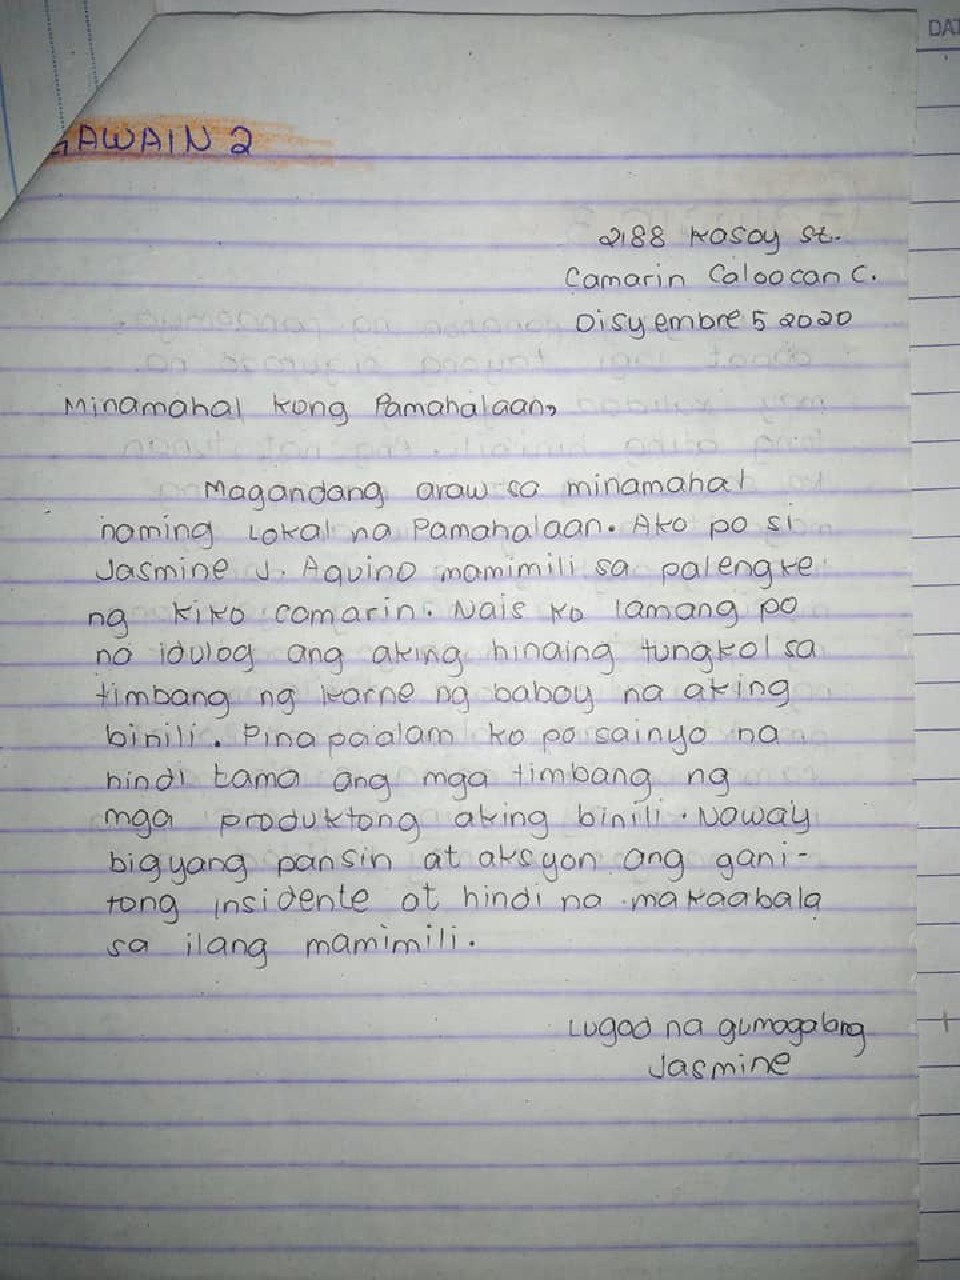 GAWAIN 2
2188 Kasoy St.
Camarin Caloocan C.
Disyembre 5 2020
Minamahal kong Pamahalaan,
Magandang araw sa minamahal
naming Lokal na Pamahalaan. Ako po si
Jasmine J. Aquino mamimili sa palengke
ng kiko camarin. Nais ko lamang po
na idulog ang aking hinaing tungkol sa
timbang ng karne ng baboy na aking
binili. Pina paalam ko po sainyo na
hindi tama ang mga timbang ng
mga produktong aking binili. Naway
bigyang pansin at aksyon ang gani-
tong insidente at hindi na makaabala
sa ilang mamimili.
Lugod na gumagalang
Jasmine
DAT